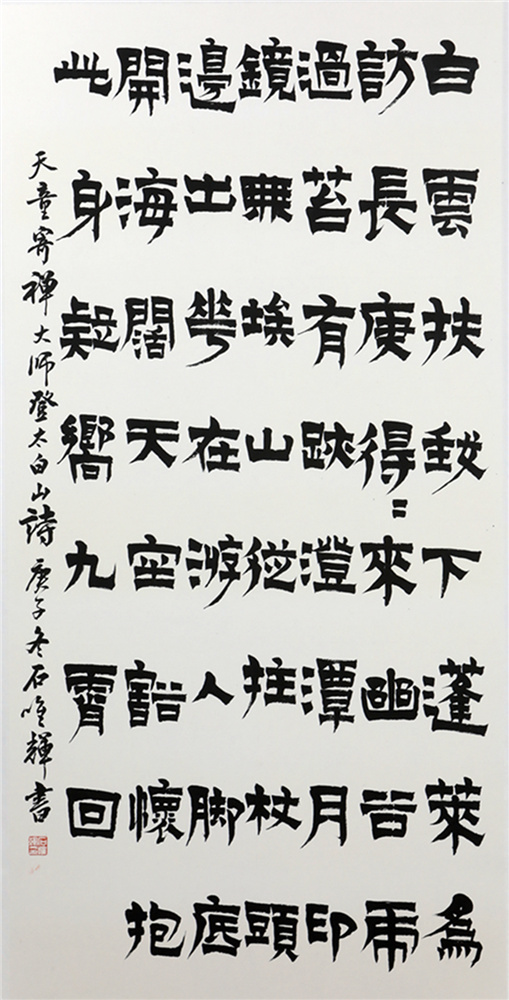 白雲扶下蓬萊為
訪長庚得〻來幽谷虎
過苔有跡澄潭月印
鏡無埃山從拄杖頭
邊出華在游人脚底
開海闊天空豁懷抱
此身疑嚮九霄回
天童寄禪大師登太白山詩 庚子冬石唯輝書